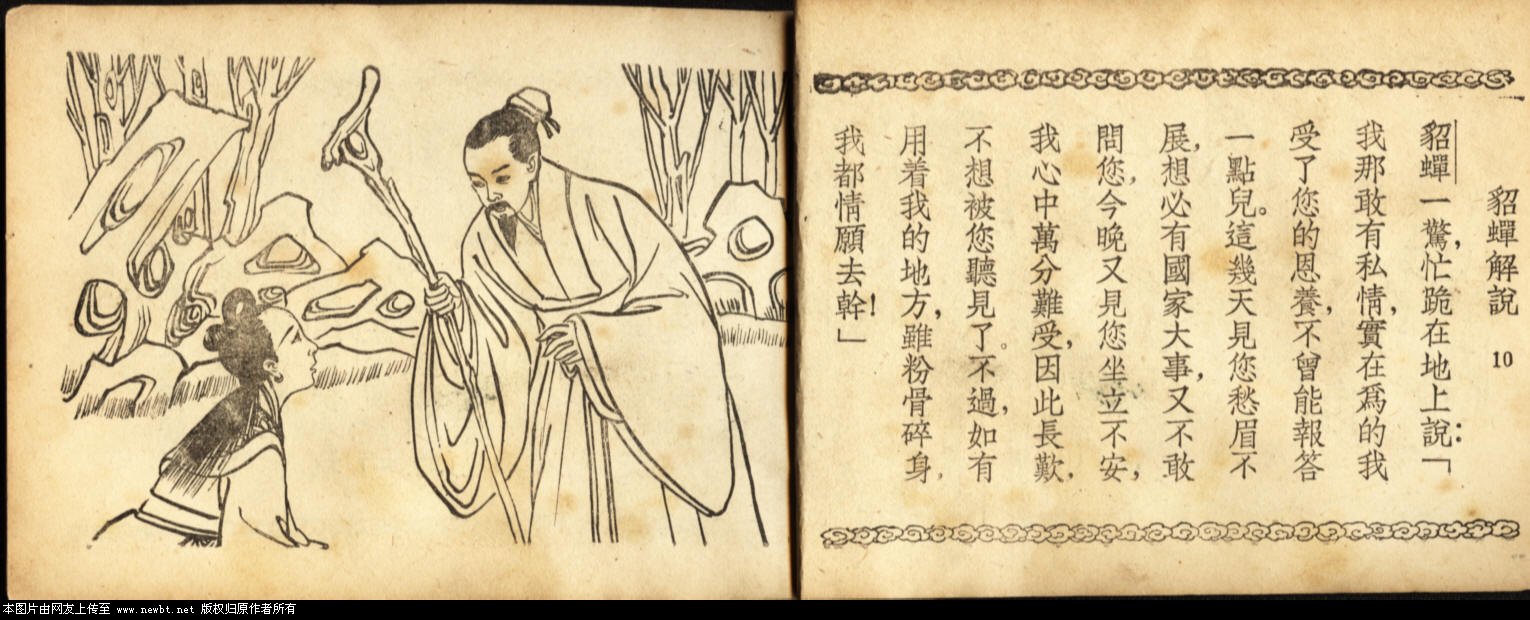 貂蟬解說 10
貂蟬一驚，忙跪在地上說：「
我那敢有私情，實在爲的我
受了您的恩養，不曾能報答
一點兒。這幾天見您愁眉不
展，想必有國家大事，又不敢
問您，今晚又見您坐立不安，
我心中萬分難受，因此長歎，
不想被您聽見了。不過，如有
用着我的地方，雖粉骨碎身，
我都情願去幹！」
本图片由网友上传至 www.newbt.net 版权归原作者所有